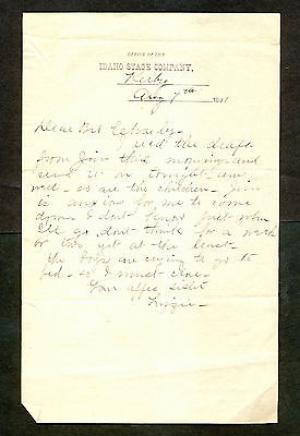 OFFICE OF THE
IDAHO STAGE COMPANY,
Kirby
Aug 7th 1881
Dear Bro Charley
I recd the draft
from Jim this morning and
send it on tonight am
well - so are the children - Jim
is anxious for me to come
down I dont know just when
I'll go dont think for a week
or two yet at the least.
The boys are crying to go to
bed - so I must close.
Your affec sister
Lizzie